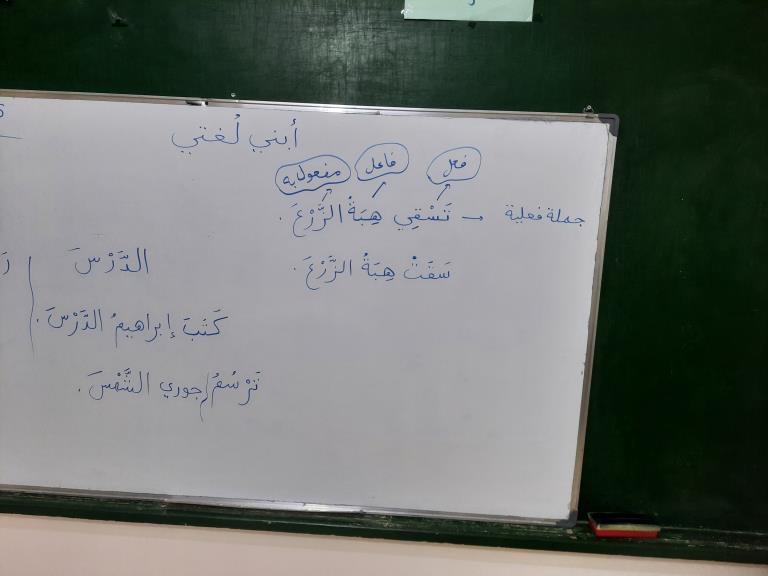 أبني لُغتي
فعل فاعل مفعول به
جملة فعلية ← تَسْقِي هِبَةُ الزَّرْعَ.
سَقَتْ هِبَةُ الزَّرْعَ.
الدَّرْسَ
كَتَبَ إبراهيمُ الدَّرْسَ.
تَرْسُمُ جوري الشَّمْسَ.